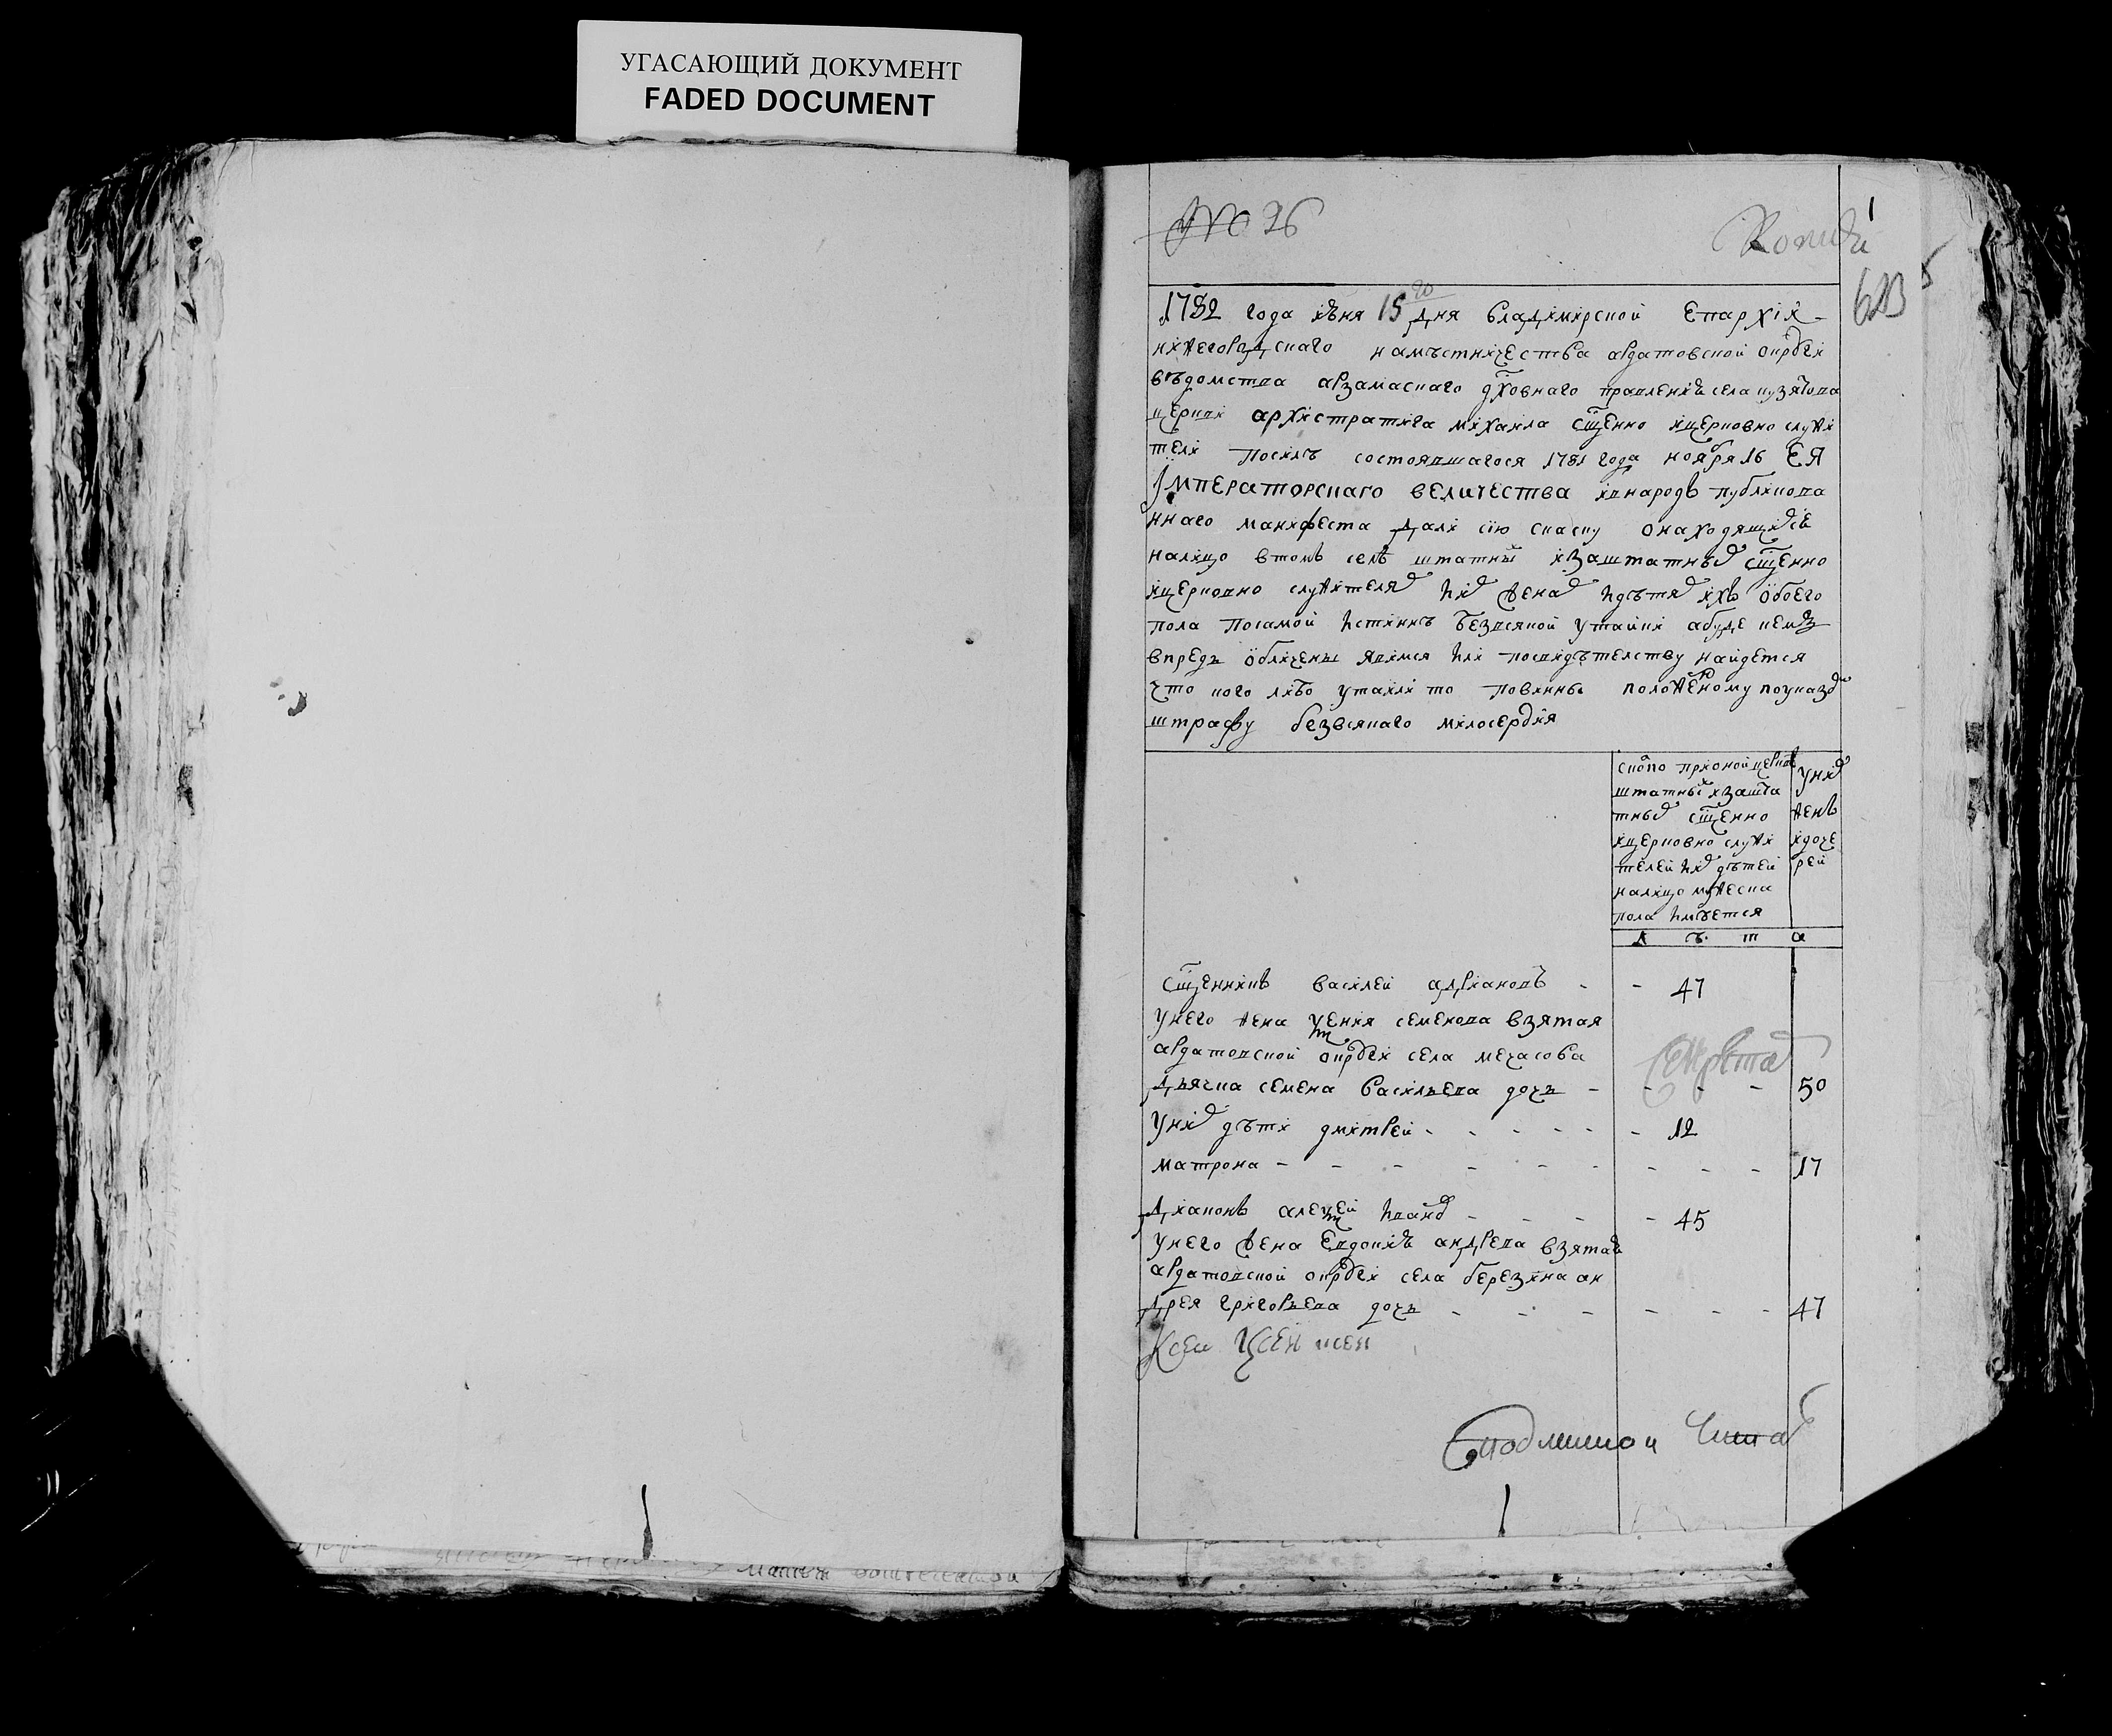 УГАСАЮЩИЙ ДОКУМЕНТ
FADED DOCUMENT
№ 26
Копиѧ
1
5
1782 года июня 15го дня владимирской Епархіи
нижегородскаго намѣстничества ардатовской округи
вѣдомства арзамаскаго дховнаго правления села пузятова
церкви архистратига михаила сщенно ицерковно служи
тели посилѣ состоявшагося 1781 года ноября 16 ЕЯ
Імператорскаго величества ивнародъ публикова
ннаго манифеста дали сїю скаску онаходящихся
налицо втомъ селѣ штатных изаштатных сщенно
ицерковно служителях ких женах идѣтях ихъ обоего
пола посамой истиннѣ безвсякой утайки абуде кемъ
впредь обличены явимся или посвидѣтелству найдется
что кого либо утаили то повинны положенному поуказу
штрафу безвсякаго милосердия
штатных изашта
тных сщенно
ицерковно служи
телей их дѣтей
налицо мужеска
пола имѣется
у них
женъ
идоче
рей
л ѣ т а
сщенникъ василей адриановъ - - 47
унего жена семенова взятая
ардатовской округи села мечасова
дьячка семена васильева дочь - - - - 50
у них дѣти дмитрей - - - - - - 12
матрона - - - - - - - - - 17
диаконъ алексей иванов - - - - 45
унего жена Евдокия андреева взятая
ардатовской округи села березина ан
дрея григорьева дочь - - - - - - 47
Сподлинной Читал